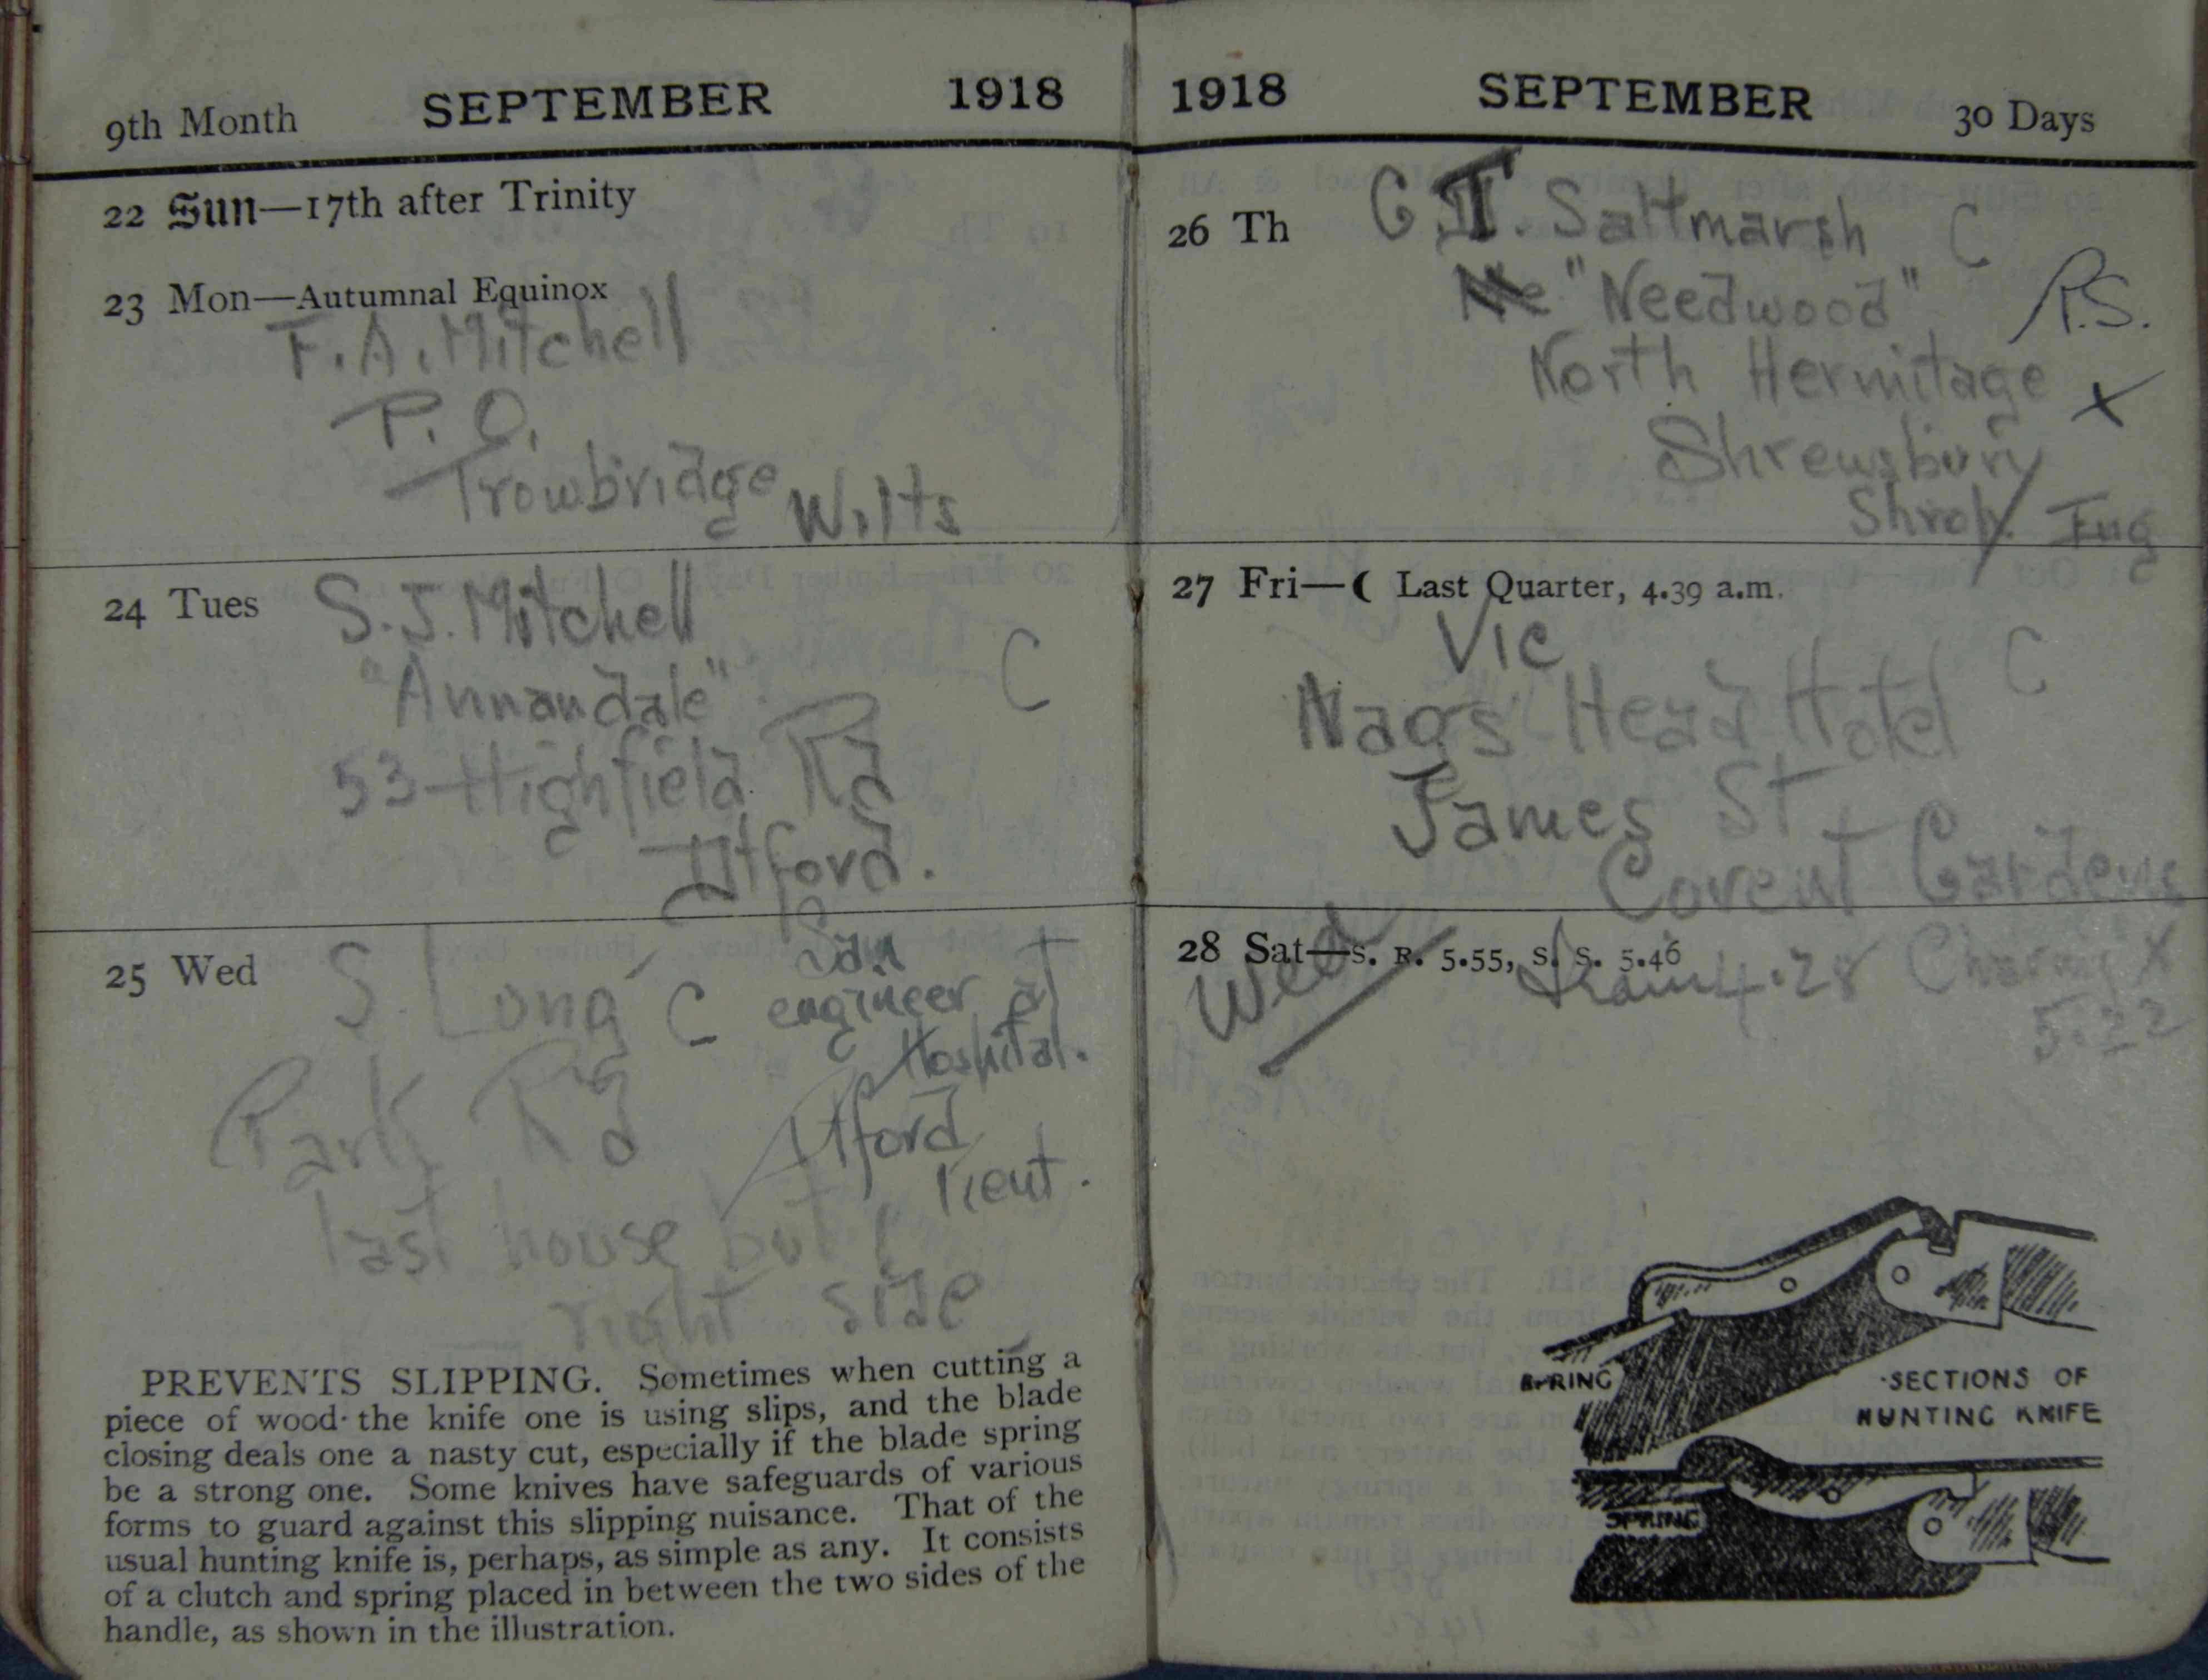 9th Month SEPTEMBER 1918
22 Sun—17th after Trinity
23 Mon—Autumnal Equinox
F.A. Mitchell
P.O.
Trowbridge Wilts
24 Tues S.J. Mitchell
C
"Annandale"
53 Highfield Rd
Dtford.
25 Wed S. Long C
Sam
engineer at
Hospital.
Park Rd
Dtford
Kent.
last house but 1
right side
PREVENTS SLIPPING. Sometimes when cutting a
piece of wood the knife one is using slips, and the blade
closing deals one a nasty cut, especially if the blade spring
be a strong one. Some knives have safeguards of various
forms to guard against this slipping nuisance. That of the
usual hunting knife is, perhaps, as simple as any. It consists
of a clutch and spring placed in between the two sides of the
handle, as shown in the illustration.
1918 SEPTEMBER 30 Days
26 Th C.T. Saltmarsh C
"Needwood" R.S.
North Hermitage X
Shrewsbury
Shrop. Eng
27 Fri—( Last Quarter, 4.39 a.m.
Vic
C
Nags Head Hotel
James St
Covent Gardens
28 Sat—S. R. 5.55, S. S. 5.46
Wed Train 4.28 Charing X
5.22
SPRING
SECTIONS OF
HUNTING KNIFE
SPRING